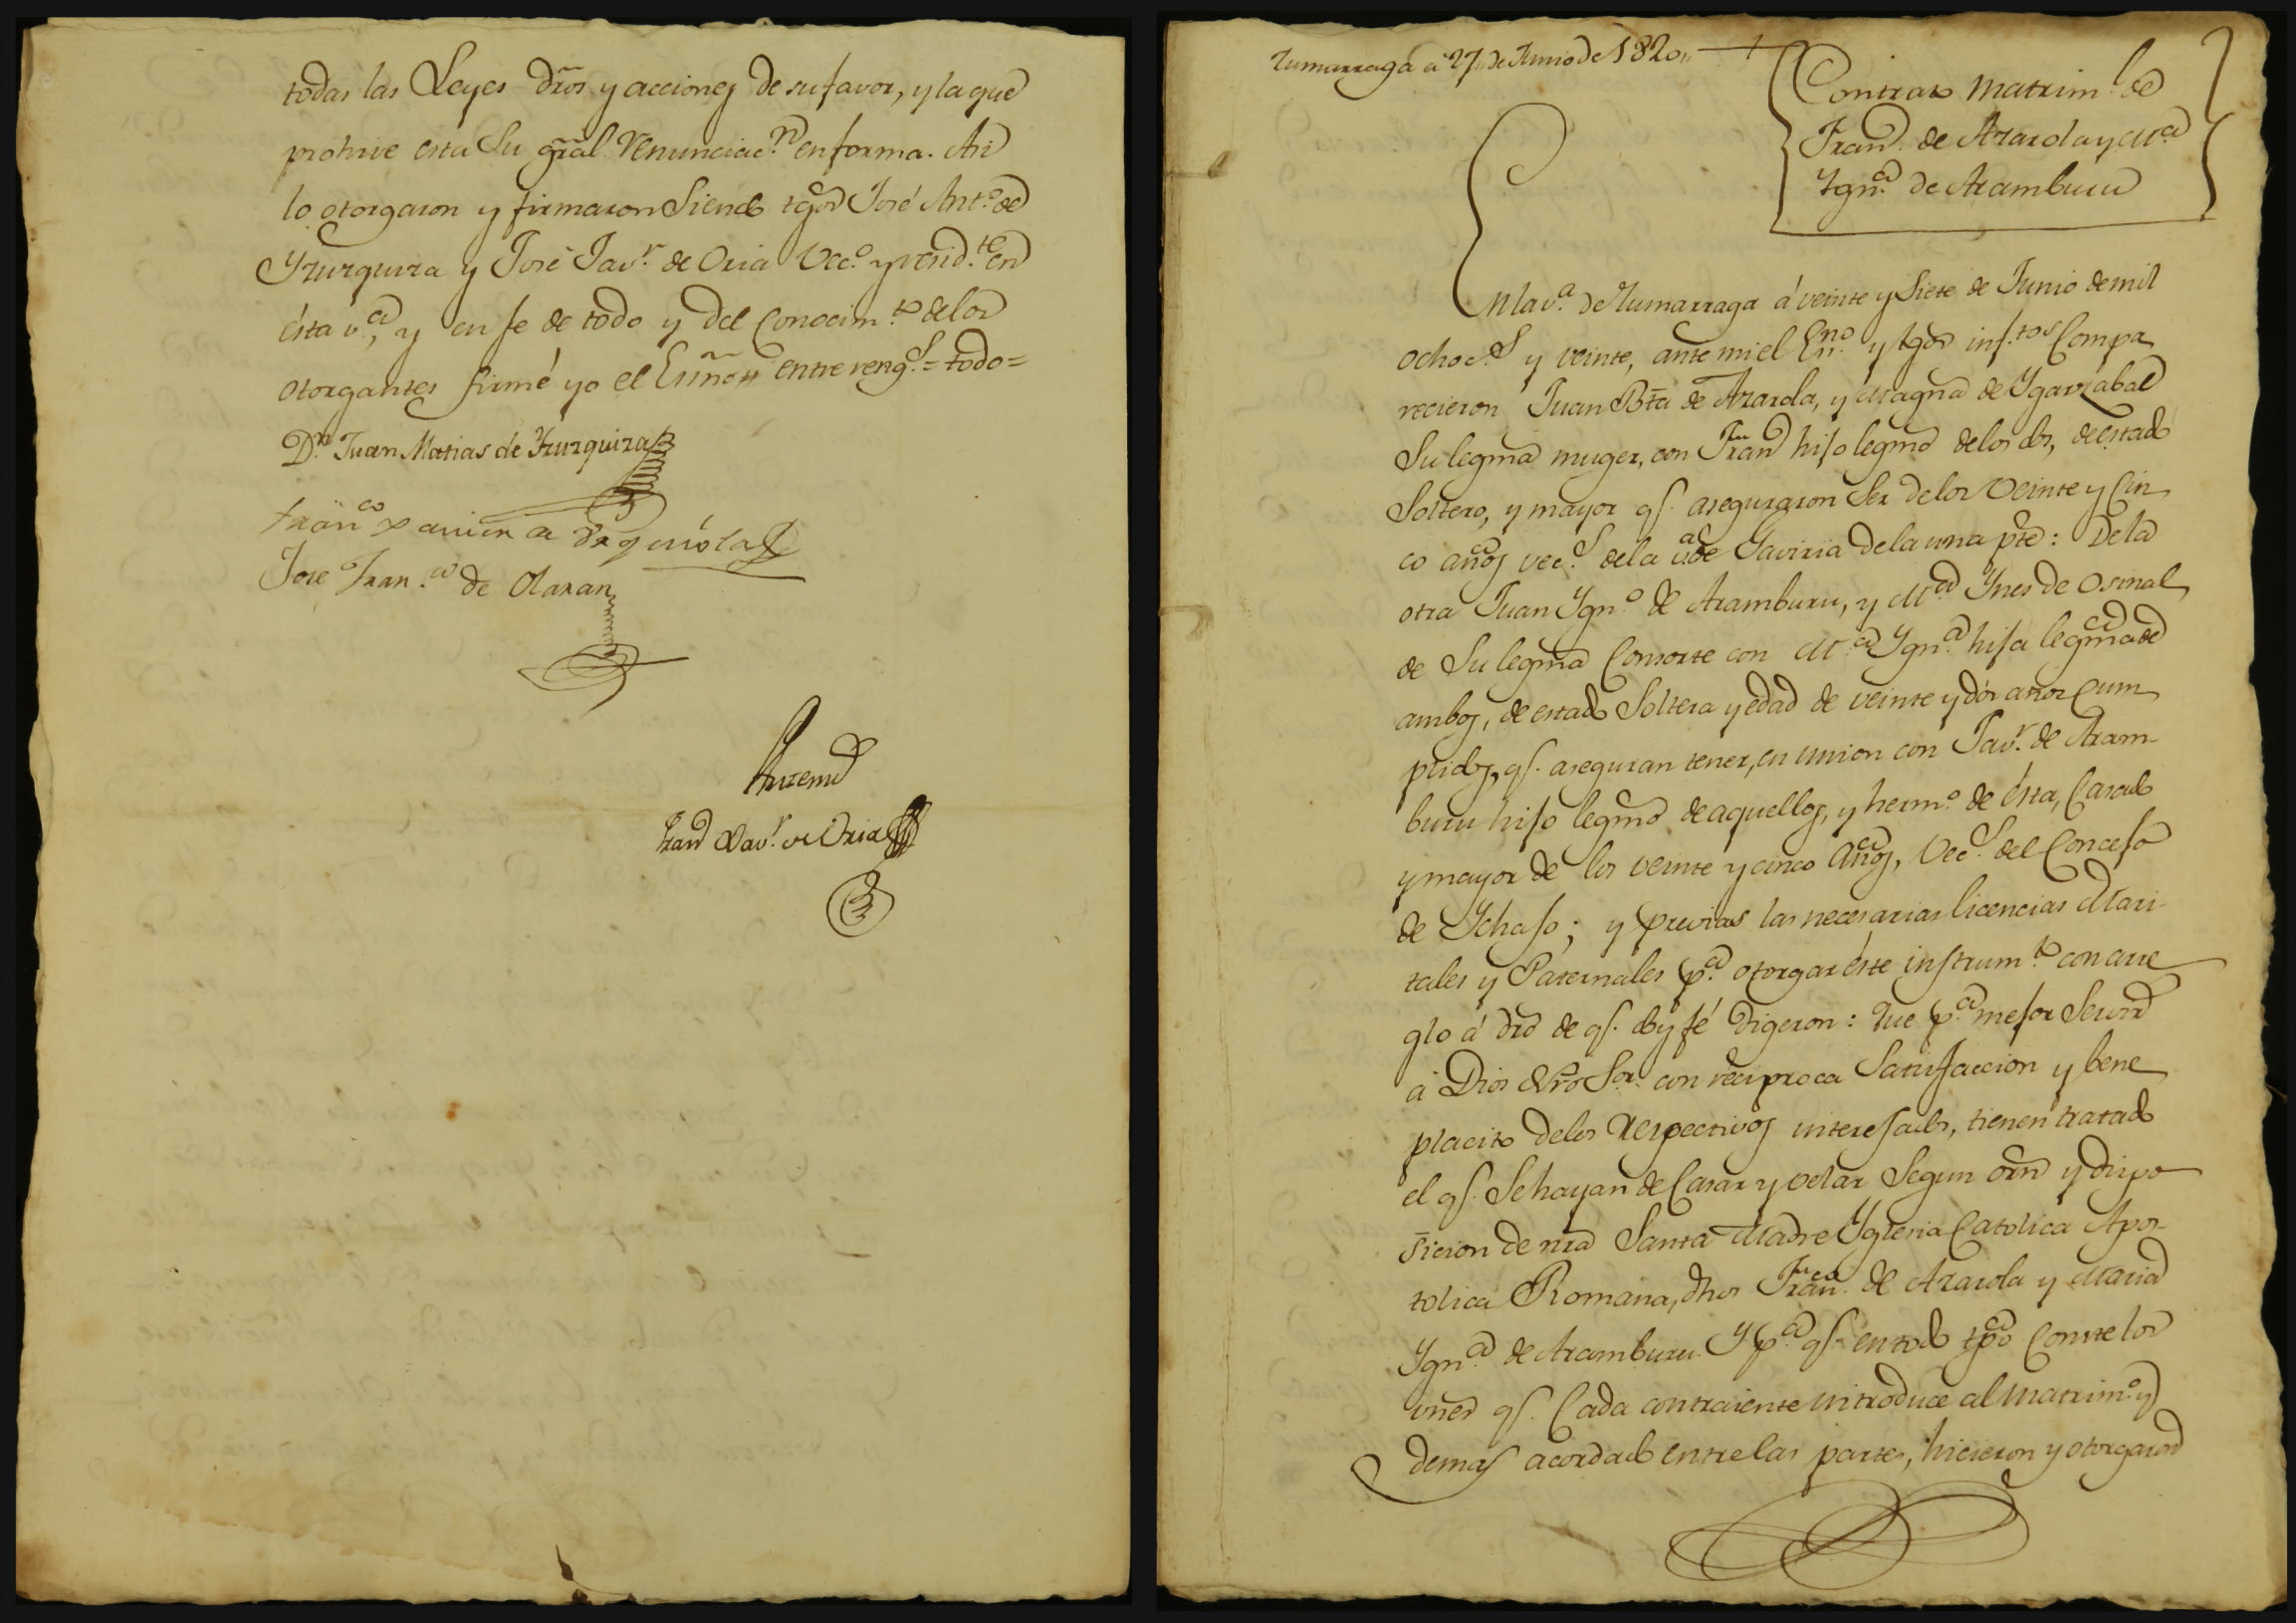 todas las Leyes dros y acciones de su favor, y la que
prohive esta Su gral renunciac.n en forma. Asi
lo otorgaron y firmaron Siendo tgos José Ant.o de
Yzurquiza y José Jav.r de Oria Vec.o y resid.te en
ésta v.a, y en fe de todo y del Conocim.to de los
otorgantes firmé yo el Esno = entre reng.s = todo =
D.n Juan Matias de Yzurquiza
Fran.co Xavier de
José Fran.co de Olaran
Antemi
Fran.co Xav.r de Oria
Zumarraga á 27,, de Junio de 1820,,
Contrato Matrim.l de
Fran.co de Azarola y M.a
Ygn.a de Aramburu
En la v.a de Zumarraga á veinte y Siete de Junio de mil
ochoc.s y veinte, ante mi el Esn.no y tgos inf.tos Compa
recieron Juan Bta de Azarola, y Magna de Ygarzabal
Su legma muger, con Fran.co hijo legmo de los dos, de estado
Soltero, y mayor q.e aseguraron Ser de los Veinte y Cin
co años vec.s de la v.a de Gaviria de la una pte: De la
otra Juan Ygn.o de Aramburu, y M.a Ynes de Osinal
de Su legma Consorte con M.a Ygn.a hija legma de
ambos, de estado Soltera y edad de veinte y dos años Cum
plidos, q.e aseguran tener, en union con Jav.r de Aram-
buru hijo legmo de aquellos, y herm.o de ésta, Casado
y mayor de los veinte y cinco años, Vec.s del Concejo
de Ychaso; y previas las necesarias licencias Mari-
tales y Paternales p.a otorgar éste instrum.to con arre
glo á dro de q.e doy fé Digeron: Que p.a mejor Servir
á Dios Nro Sor. con reciproca Satisfaccion y bene
placito de los respectivos interesados, tienen tratado
el q.e Se hayan de Casar y velar Segun orn y dispo
sicion de nra Santa Madre Yglesia Catolica Apos-
tolica Romana, dhos Fran.co de Azarola y Maria
Ygn.a de Aramburu. Y p.a q.e en todo tpo Conste los
vnes q.e Cada contraiente introduce al Matrim.o y
demas acordado entre las partes, hicieron y otorgaron